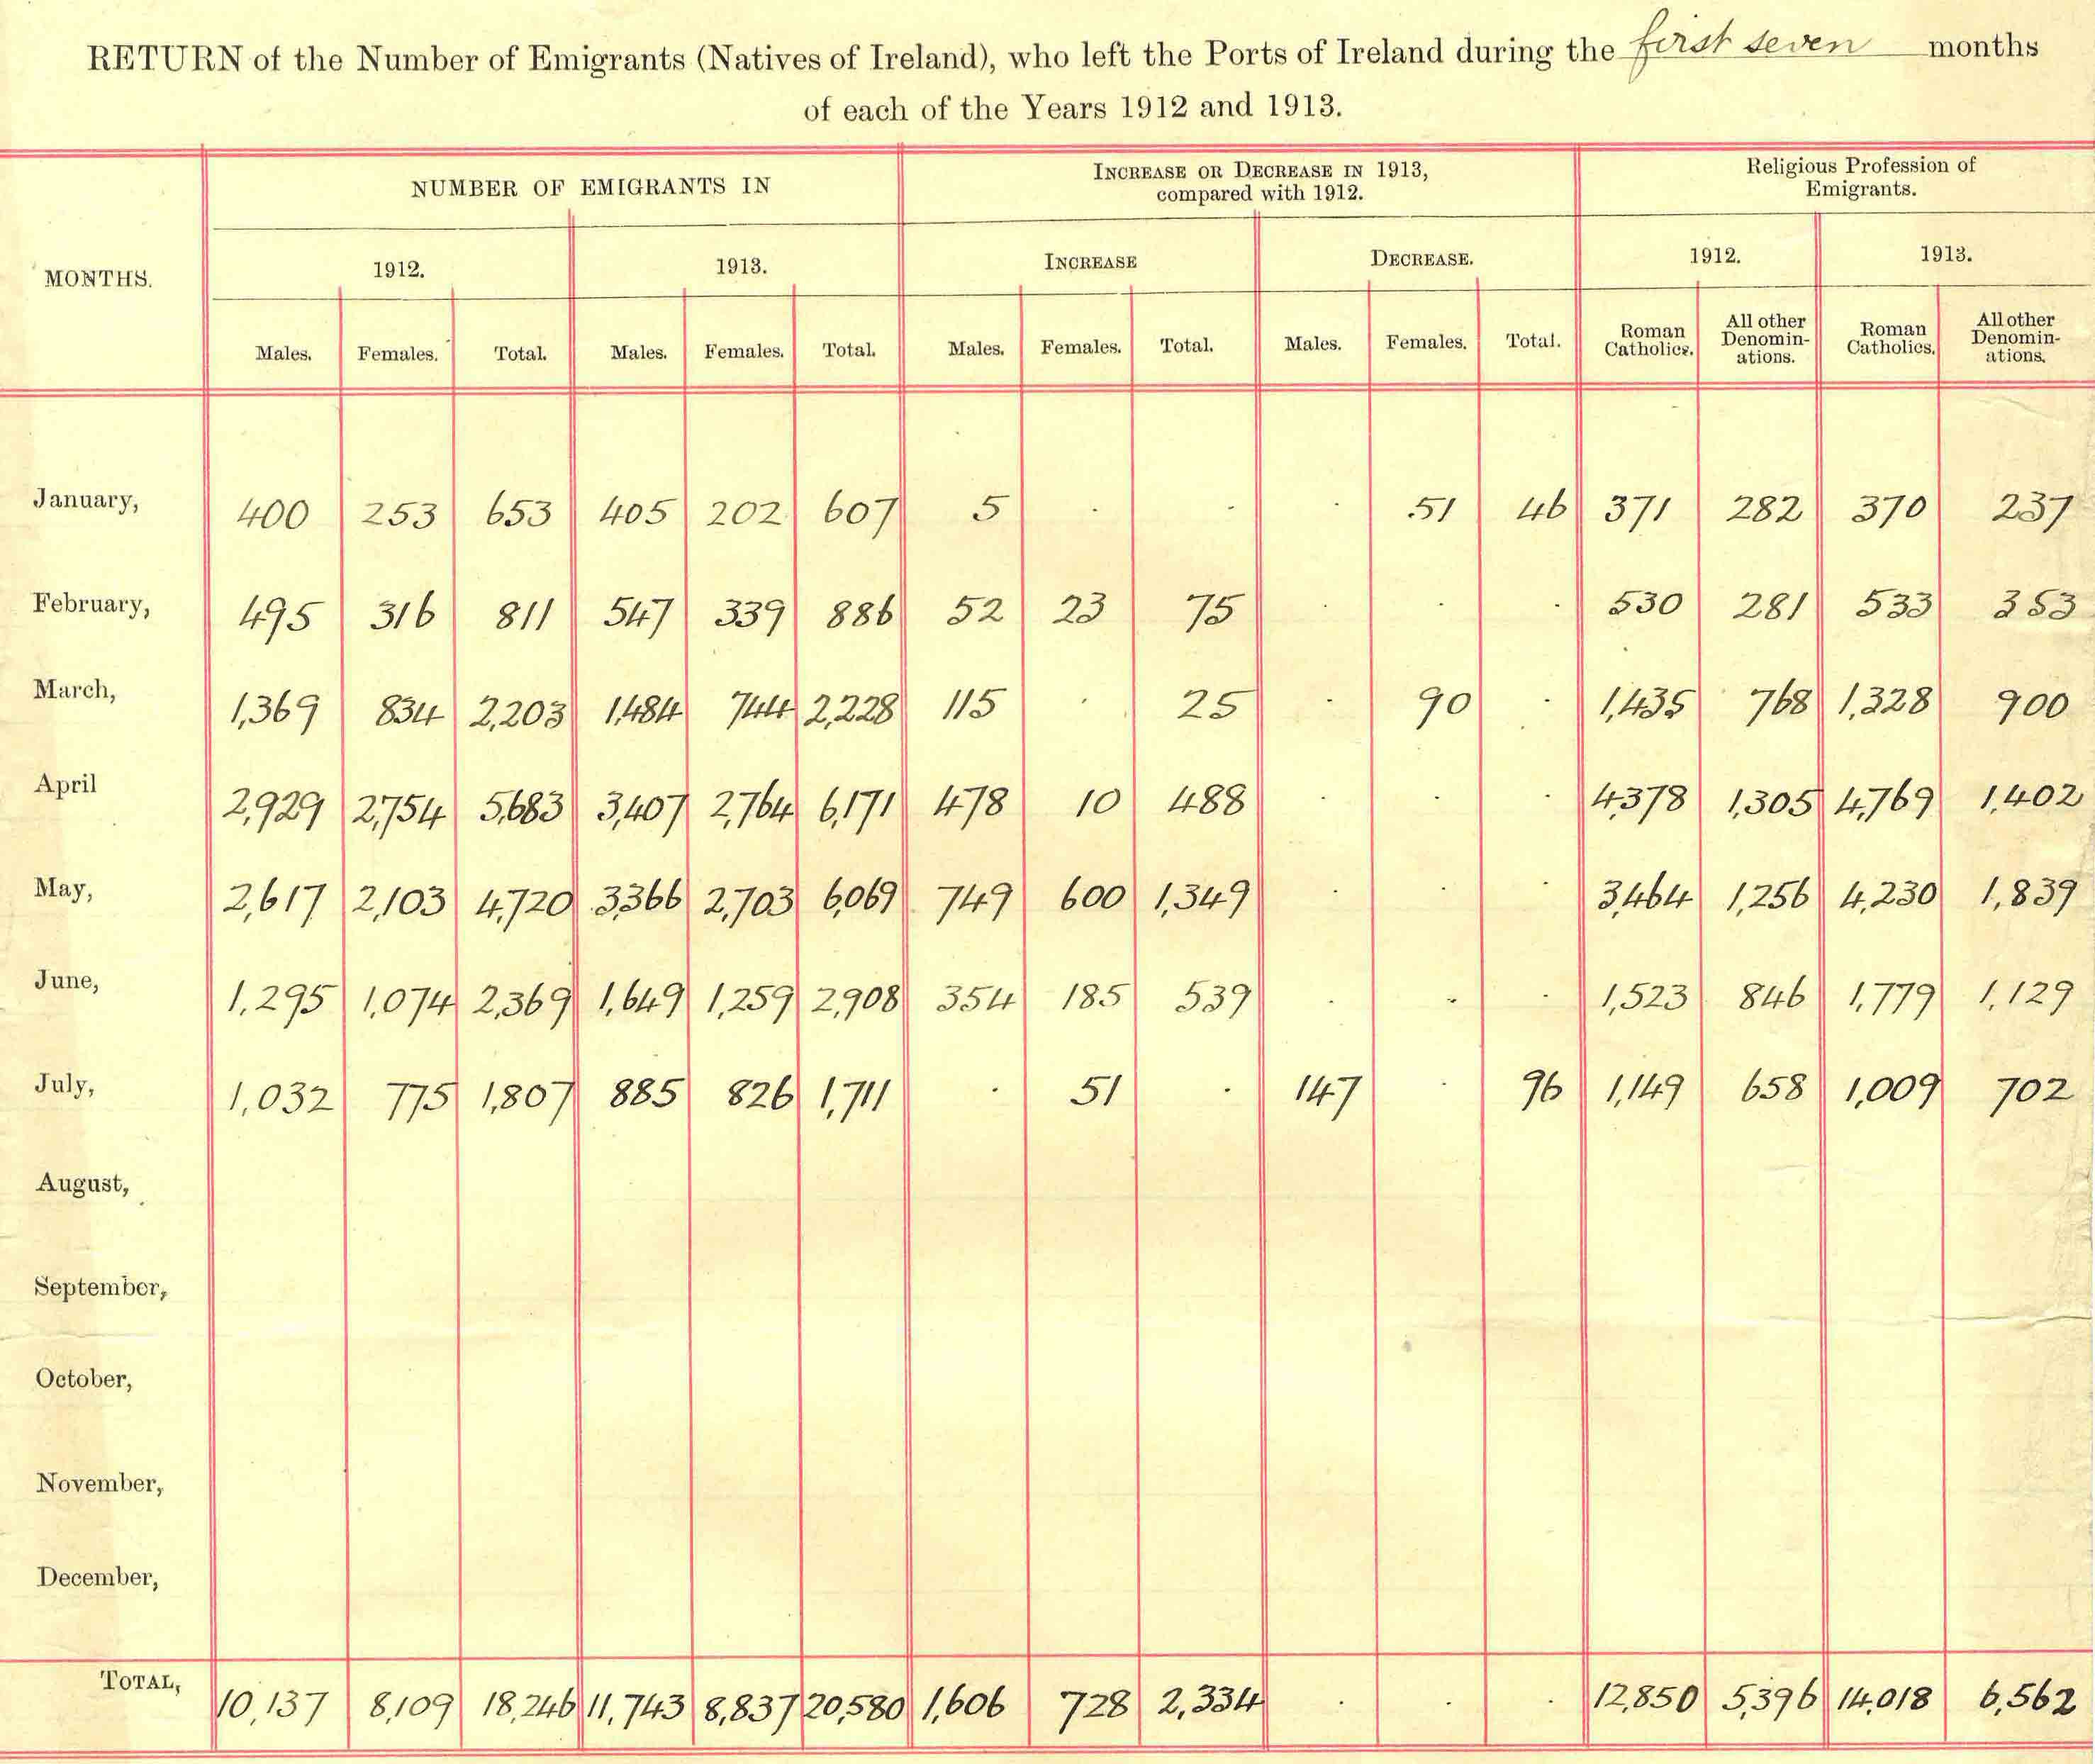 RETURN of the Number of Emigrants (Natives of Ireland), who left the Ports of Ireland during the first seven months
of each of the Years 1912 and 1913.
MONTHS.
NUMBER OF EMIGRANTS IN
INCREASE OR DECREASE IN 1913,
compared with 1912.
Religious Profession of
Emigrants.
1912. 1913. INCREASE DECREASE. 1912. 1913.
Males. Females. Total. Males. Females. Total. Males. Females. Total. Males. Females. Total. Roman Catholics. All other Denomin-ations. Roman Catholics. All other Denomin-ations.
January, 400 253 653 405 202 607 5 . . . 51 46 371 282 370 237
February, 495 316 811 547 339 886 52 23 75 . . . 530 281 533 353
March, 1,369 834 2,203 1,484 744 2,228 115 . 25 . 90 . 1,435 768 1,328 900
April 2,929 2,754 5,683 3,407 2,764 6,171 478 10 488 . . . 4,378 1,305 4,769 1,402
May, 2,617 2,103 4,720 3,366 2,703 6,069 749 600 1,349 . . . 3,464 1,256 4,230 1,839
June, 1,295 1,074 2,369 1,649 1,259 2,908 354 185 539 . . . 1,523 846 1,779 1,129
July, 1,032 775 1,807 885 826 1,711 . 51 . 147 . 96 1,149 658 1,009 702
August,
September,
October,
November,
December,
TOTAL, 10,137 8,109 18,246 11,743 8,837 20,580 1,606 728 2,334 . . . 12,850 5,396 14,018 6,562